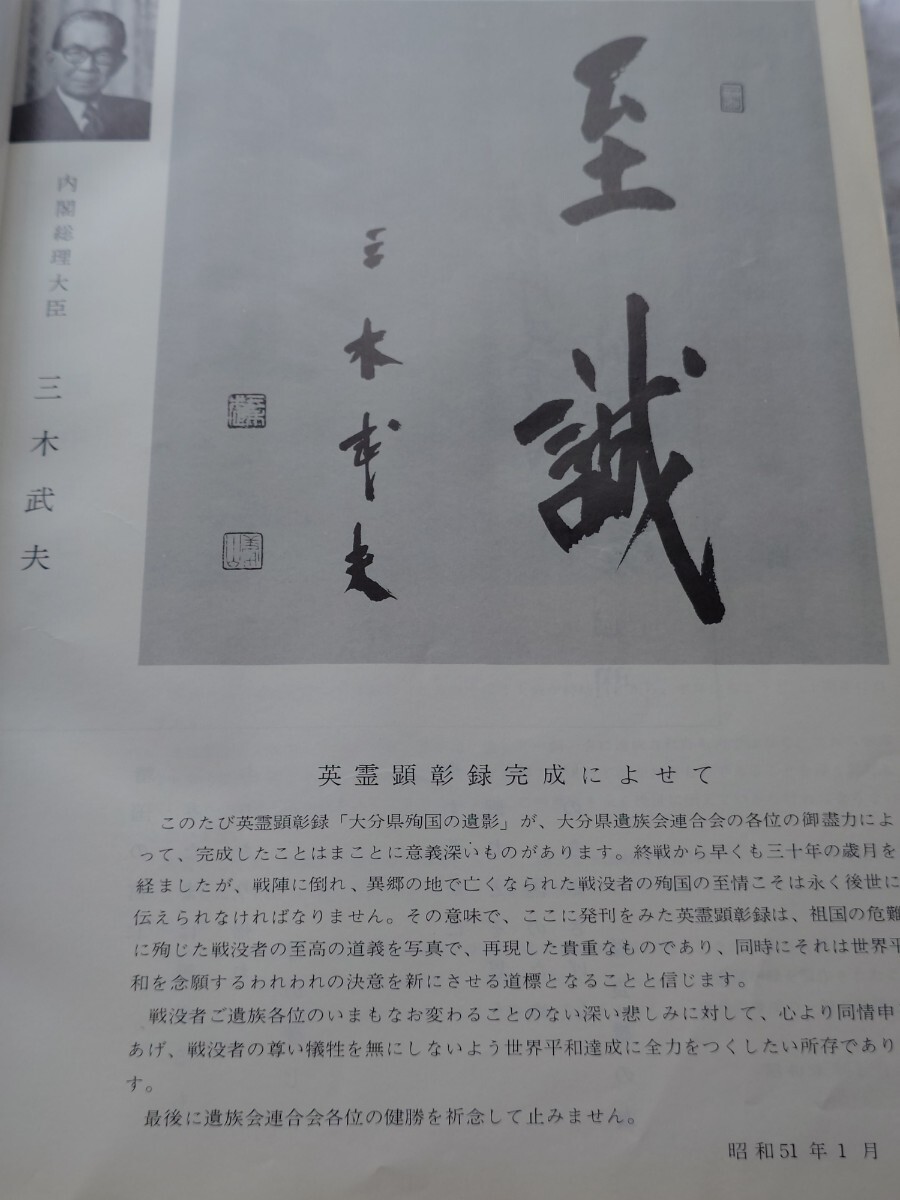 内閣総理大臣 三木武夫
至誠
三木武夫
英霊顕彰録完成によせて
このたび英霊顕彰録「大分県殉国の遺影」が、大分県遺族会連合会の各位の御盡力によ
って、完成したことはまことに意義深いものがあります。終戦から早くも三十年の歳月を
経ましたが、戦陣に倒れ、異郷の地で亡くなられた戦没者の殉国の至情こそは永く後世に
伝えられなければなりません。その意味で、ここに発刊をみた英霊顕彰録は、祖国の危難
に殉じた戦没者の至高の道義を写真で、再現した貴重なものであり、同時にそれは世界平
和を念願するわれわれの決意を新にさせる道標となることと信じます。
戦没者ご遺族各位のいまもなお変わることのない深い悲しみに対して、心より同情申
あげ、戦没者の尊い犠牲を無にしないよう世界平和達成に全力をつくしたい所存であり
す。
最後に遺族会連合会各位の健勝を祈念して止みません。
昭和51年1月